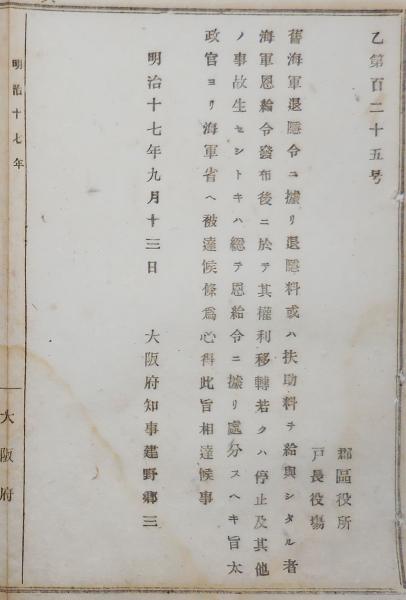 乙第百二十五号
郡區役所
戸長役塲
舊海軍退隱令ニ據リ退隱料或ハ扶助料ヲ給與シタル者
海軍恩給令發布後ニ於テ其權利移轉若クハ停止及其他
ノ事故生セシトキハ總テ恩給令ニ據リ處分スヘキ旨太
政官ヨリ海軍省ヘ被達候條爲心得此旨相達候事
明治十七年九月十三日
大阪府知事建野郷三
明治十七年
大阪府